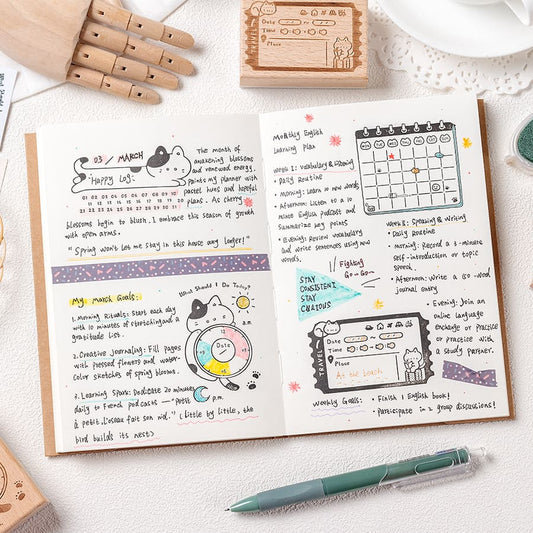 Date
Time
Place
TRAVEL
03 / MARCH
Happy Log:
01 02 03 04 05 06 07 08 09 10
11 12 13 14 15 16 17 18 19 20
21 22 23 24 25 26 27 28 29 30 31
The month of
awakening blossoms
and renewed energy,
paints my planner with
pastel hues and hopeful
plans. As cherry
blossoms begin to blush, I embrace this season of growth
with open arms.
"Spring won't let me stay in this house any longer!"
My March Goals:
1. Morning Rituals: Start each day
with 10 minutes of stretching and a
gratitude list.
2. Creative Journaling: Fill pages
with pressed flowers and water-
color sketches of spring blooms.
3. Learning Spurs: Dedicate 20 minutes
daily to French podcasts — "Petit
à petit, l'oiseau fait son nid." (Little by little, the
bird builds its nest)
What Should I Do Today?
a.m.
Date
p.m.
Monthly English
Learning Plan
Week 1: Vocabulary & Listening
• Daily Routine
• Morning: Learn 10 new words
• Afternoon: Listen to a 10
minute English podcast and
summarize key points
• Evening: Review vocabulary
and write sentences using new
words.
Fighting
Go~Go~
STAY
CONSISTENT
STAY
CURIOUS
Week 2: Speaking & Writing
• Daily Routine
• Morning: Record a 3-minute
self-introduction or topic
speech.
• Afternoon: Write a 60-word
journal entry
Evening: Join an
online language
exchange or practice
or practice with
a study partner.
TRAVEL
Date
Time
Place
At the beach
Weekly Goals:
• Finish 1 English book!
• Participate in 2 group discussions!